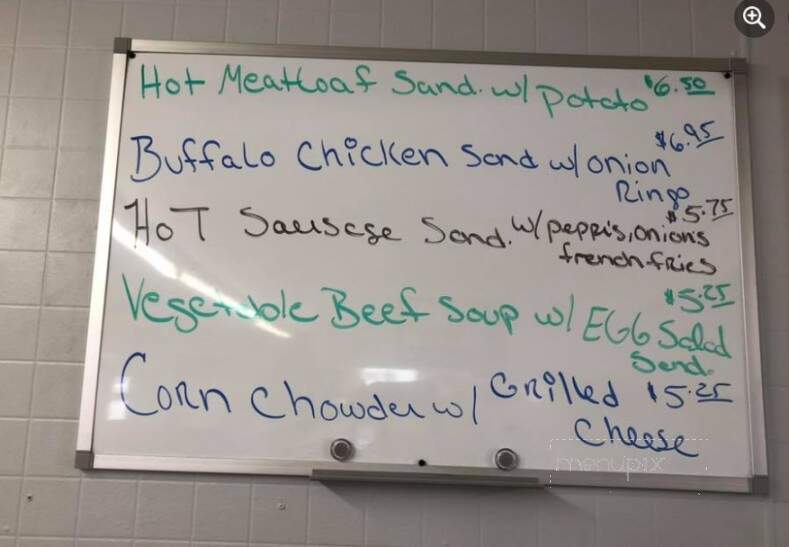 Hot Meatloaf Sand. w/ potato $6.50
Buffalo Chicken Sand w/ onion $6.95
Rings
HOT Sausage Sand. w/ pepp's, onions $5.75
french fries
Vegetable Beef Soup w/ EGG Salad $5.25
Sand.
Corn Chowder w/ Grilled $5.25
Cheese
menupix